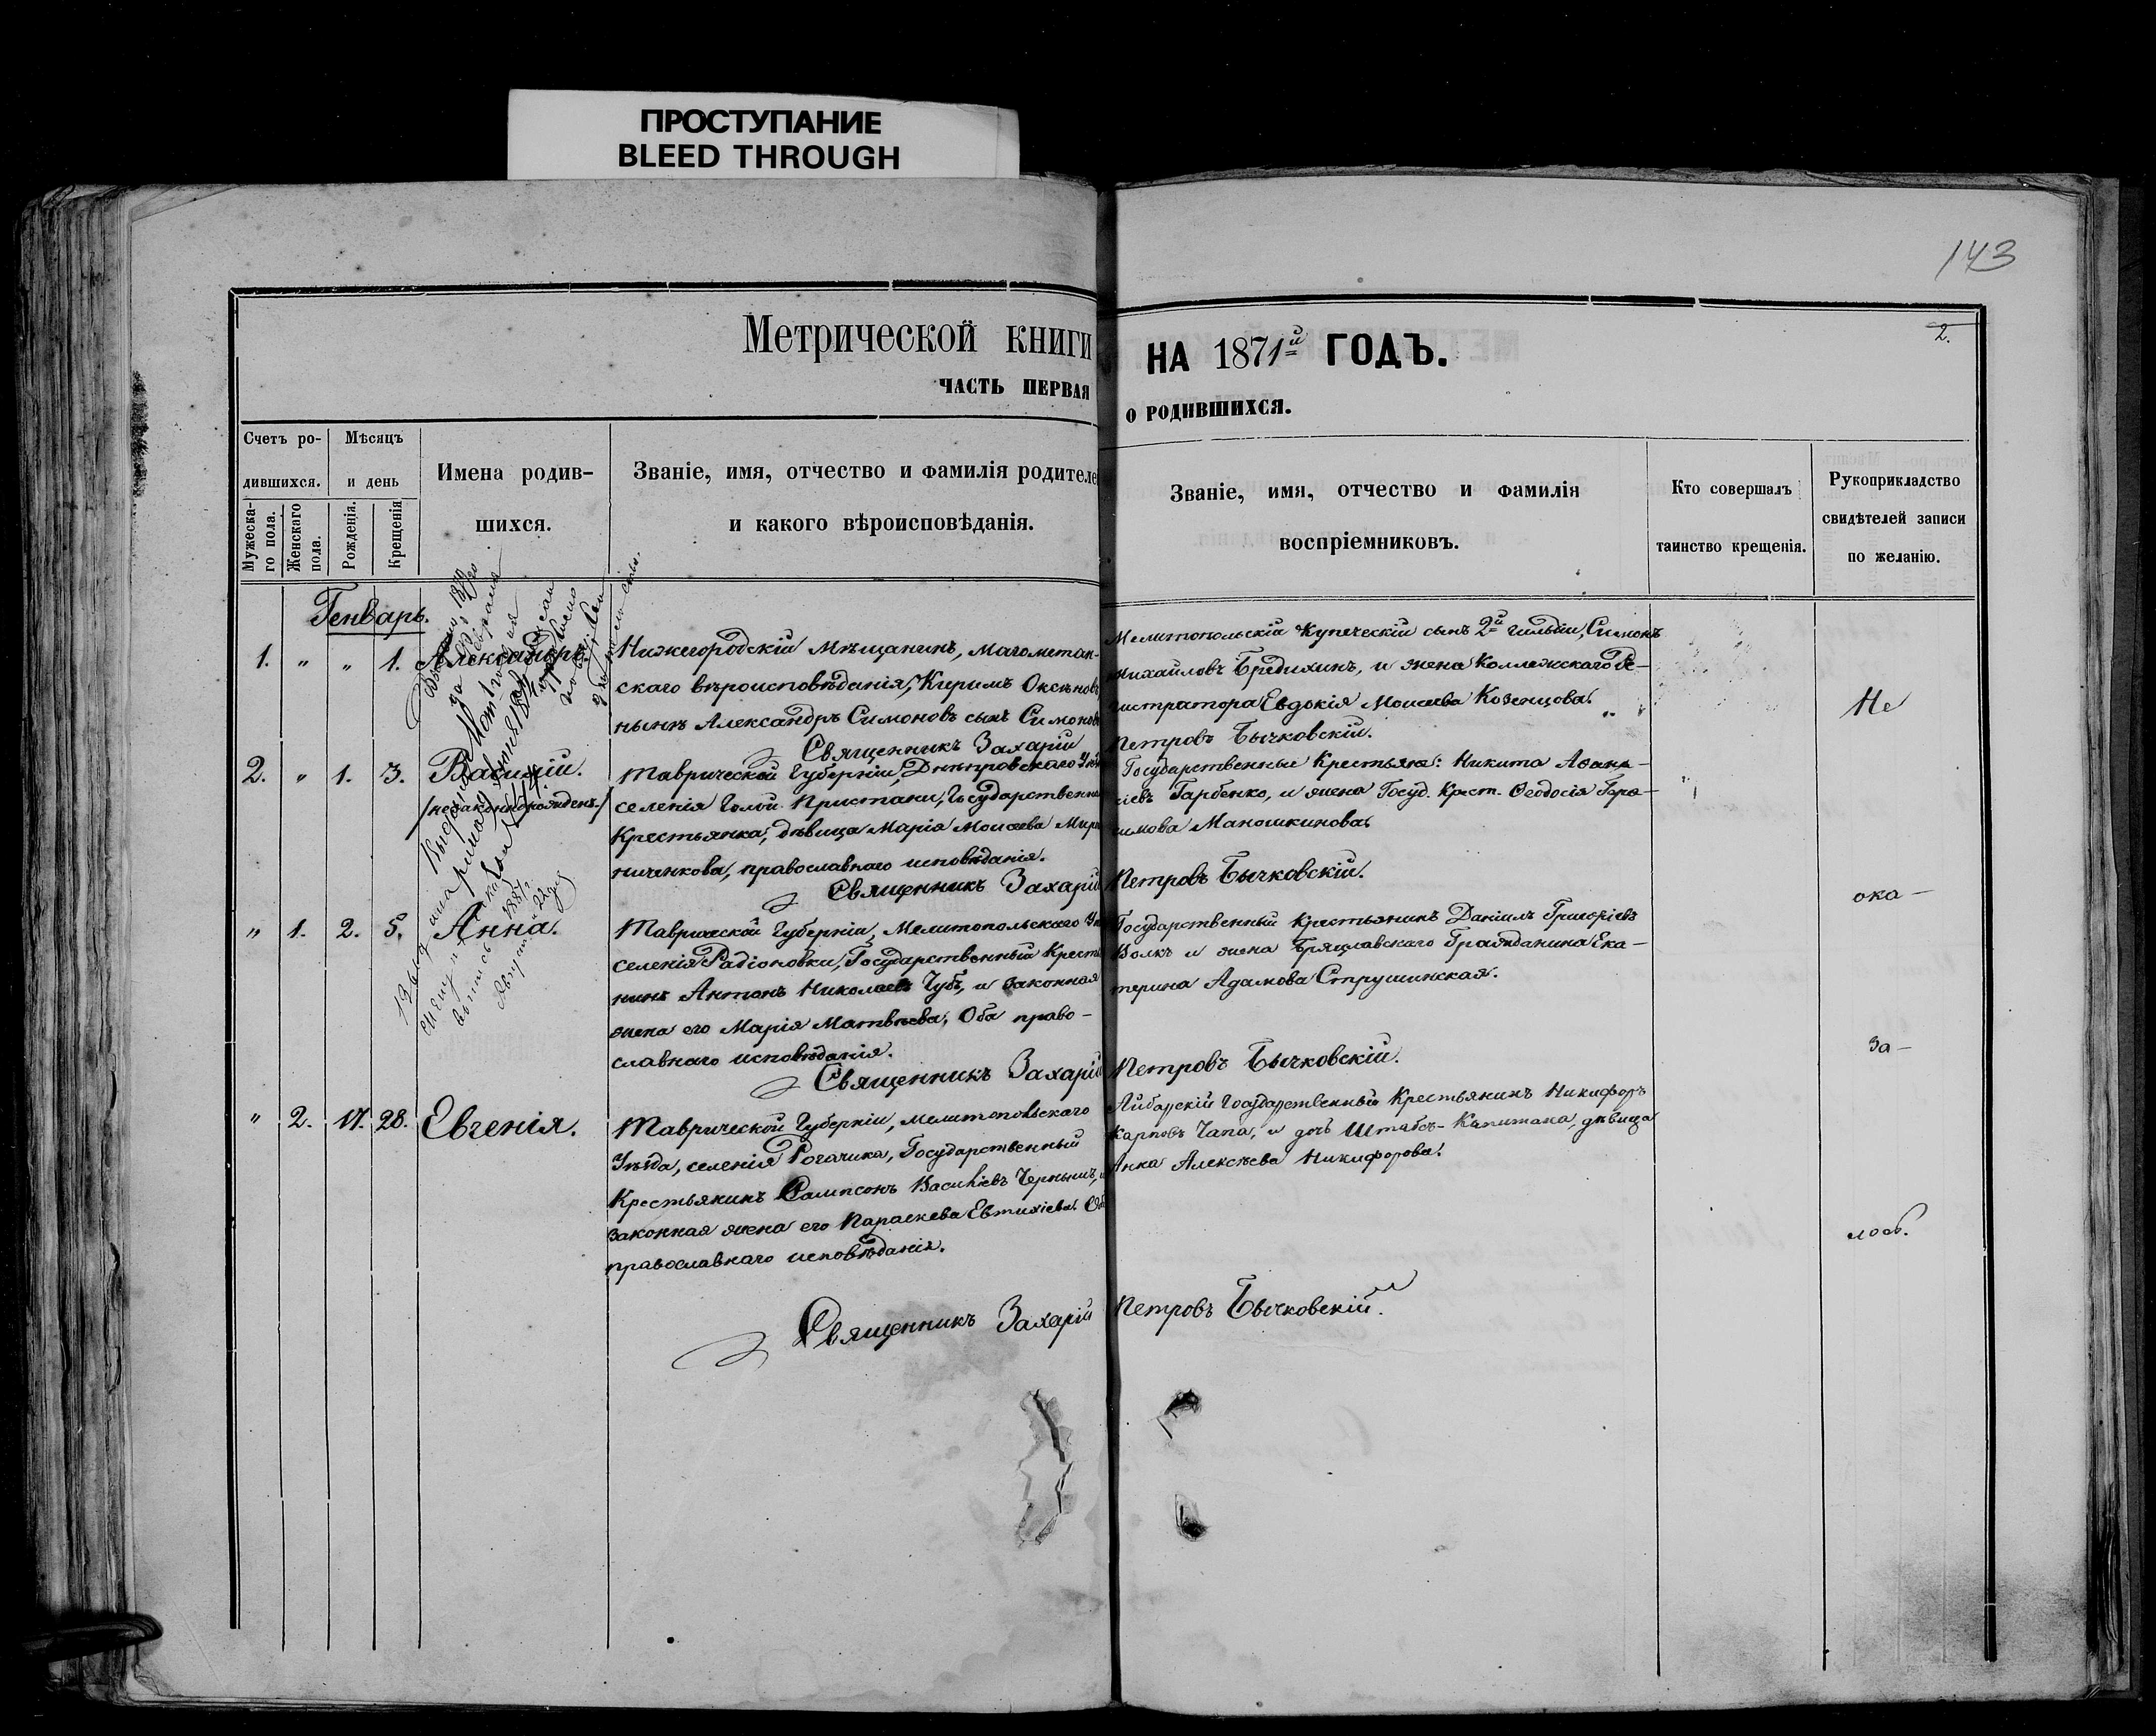 ПРОСТУПАНИЕ
BLEED THROUGH
143
2.
Метрической книги НА 1871й ГОДЪ.
ЧАСТЬ ПЕРВАЯ О РОДИВШИХСЯ.
Счетъ ро-
дившихся.
Мужеска-
го пола.
Женскаго
пола.
Мѣсяцъ
и день
Рожденія.
Крещенія
Имена родив-
шихся.
Званіе, имя, отчество и фамилія родителе
и какого вѣроисповѣданія.
Званіе, имя, отчество и фамилія
воспріемниковъ.
Кто совершалъ
таинство крещенія.
Рукоприкладство
свидѣтелей записи
по желанію.
Генварь.
1. " " 1. Александръ
Нижегородскій Мѣщанинъ, магометан-
скаго вѣроисповѣданія, Киримъ Оксѣновъ
нынѣ Александръ Симоновъ сынъ Симоновъ
Мелитопольскій Купеческій сынъ 2й гильдіи, Симонъ
Михайловъ Бредихинъ, и жена Коллежскаго Ре-
гистратора Евдокія Моисеева Козенцова.
Священникъ Захарій Петровъ Бычковскій.
2. " 1. 3. Василій.
/незаконнорожденъ./
Таврической Губерніи, Днѣпровскаго Уѣз
селенія Голой Пристани, Государственна
Крестьянка, дѣвица Марія Моисеева Мир
ниченкова, православнаго исповѣданія.
Государственные Крестьяне: Никита Афана-
сіевъ Гарбенко, и жена Госуд. Крест. Ѳеодосія Гера-
симова Маношкинова.
Священникъ Захарій Петровъ Бычковскій.
" 1. 2. 5. Анна.
Таврической Губерніи, Мелитопольскаго Уѣ
селенія Радіоновки, Государственный Кресть
нинъ Антонъ Николаевъ Чубъ, и законная
жена его Марія Матвѣева, Оба право-
славнаго исповѣданія.
Государственный Крестьянинъ Даніилъ Григоріевъ
Волкъ и жена Бряцлавскаго Гражданина Ека-
терина Адамова Струшинская.
Священникъ Захарій Петровъ Бычковскій.
" 2. 17. 28. Евгенія.
Таврической Губерніи, Мелитопольскаго
Уѣзда, селенія Рогачика, Государственный
Крестьянинъ Сампсонъ Василіевъ Чернышъ, и
законная жена его Параскева Евтихіева. Оба
православнаго исповѣданія.
Айбарскій Государственный Крестьянинъ Никифоръ
Карповъ Чапа, и дочь Штабсъ-Капитана, дѣвица
Анна Алексѣева Никифорова.
Священникъ Захарій Петровъ Бычковскій.
Не
ока-
за-
лось.